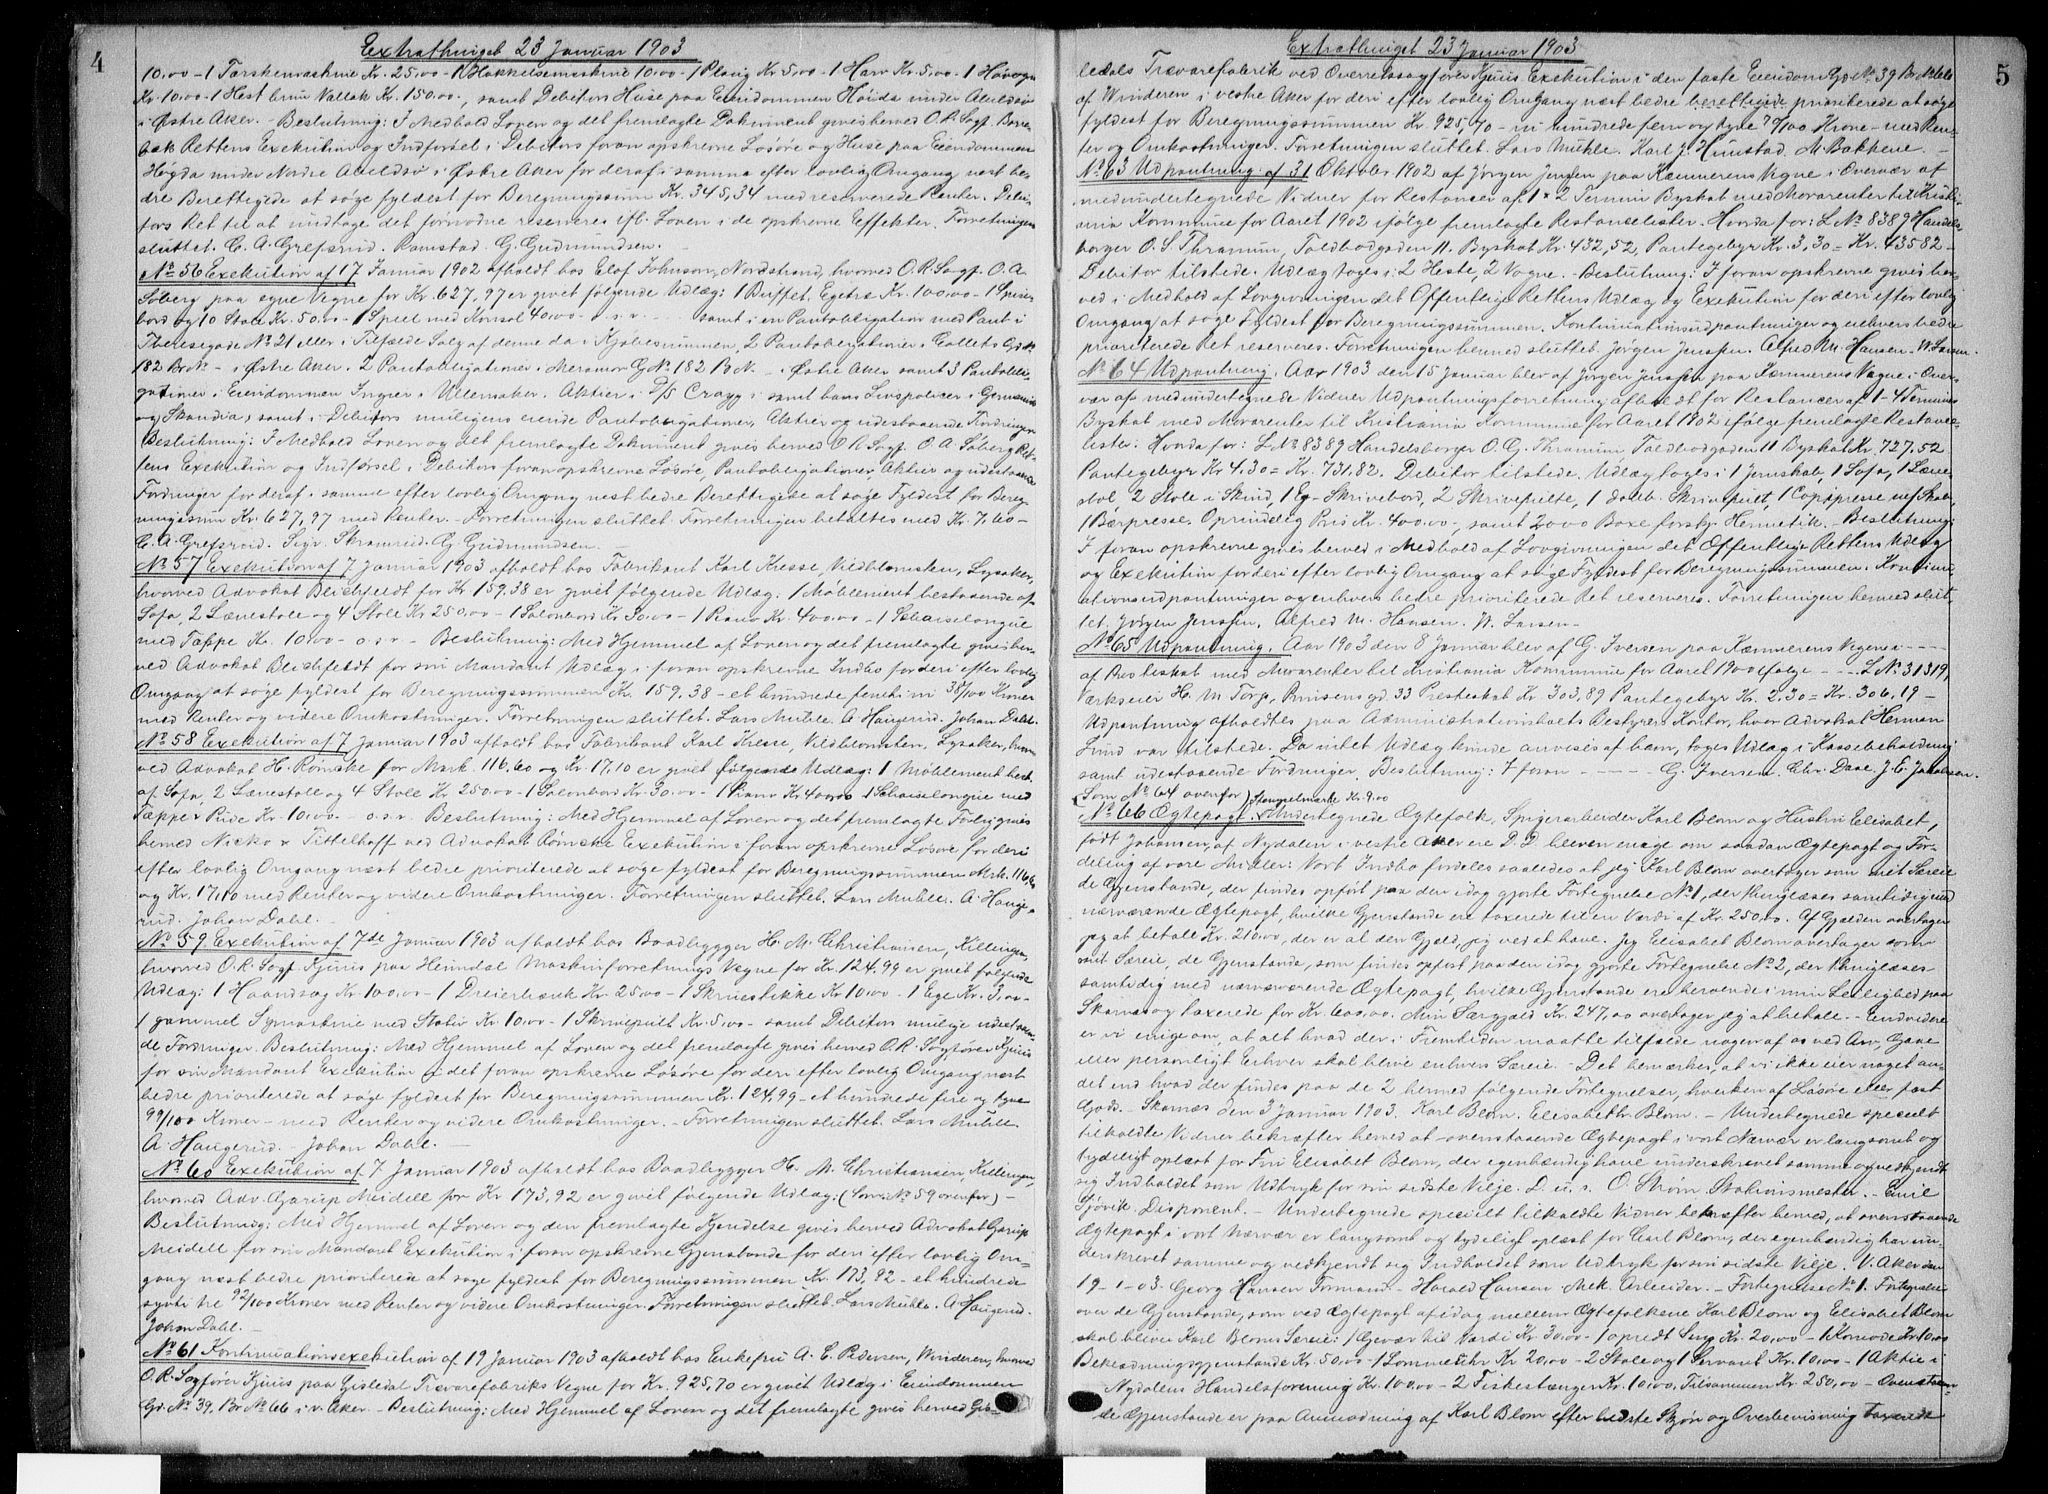 4
Extrathinget 23 Januar 1903
10,00 - 1 Tærskemaskine Kr. 25,00 - 1 Hakkelsemaskine 10,00 - 1 Plaug Kr 5,00 - 1 Harv Kr. 5,00 - 1 Høvogn
Kr. 10,00 - 1 Hest brun Vallak Kr. 150,00, samt Debitors Huse paa Eiendommen Høgda under Abildsø
i Østre Aker. - Beslutning: I Medhold Loven og det fremlagte Dokument gives herved O.R. Sagf.
Rettens Exekution og Indførsel i Debitors foran opskrevne Løsøre og Huse paa Eiendommen
Høgda under Nordre Abildsø i Østre Aker for deraf i samme efter lovlig Omgang næst be-
dre Berettigede at søge fyldest for Beregningssum Kr. 345,34 med reserverede Renter. Debi-
tors Ret til at undtage det fornødne reserveres ifl. Loven i de opskrevne Effekter. Forretningen
sluttet. C. A. Grefsrud. Ramstad. G. Gudmundsen.
No 56 Exekution af 17 Januar 1902 afholdt hos Elof Johnson, Nordstrand, hvorved O.R. Sagf. O. A.
Søberg paa egne Vegne for Kr. 627,97 er givet følgende Udlæg: 1 Buffet, Egetræ Kr. 100,00 - 1 Spise-
bord og 10 Stole Kr. 50,00 - 1 Speil med Konsol 40,00 - o.s.v. - samt i en Pantobligation med Pant i
Theresegade No 21 eller i Tilfælde Salg af denne da i Kjøbesummen, 2 Pantobligationer i Colletts Gd No
182 Br No - i Østre Aker. 2 Pantobligationer i G No 182 B N. - i Østre Aker samt 3 Pantobli-
gationer i Eiendommen i Ullensaker. Aktier i D/S Cragg i samt hans Livspolicer i Germania
og Skandia, samt i Debitors muligens eiende Pantobligationer, Aktier og udestaaende Fordringer
Beslutning: I Medhold Loven og det fremlagte Dokument gives herved O.R. Sagf. O. A. Søberg Ret-
tens Exekution og Indførsel i Debitors foran opskrevne Løsøre, Pantobligationer, Aktier og udestaaende
Fordringer for deraf i samme efter lovlig Omgang næst bedre Berettigede at søge Fyldest for Bereg-
ningssum Kr. 627,97 med Renter. - Forretningen sluttet. Forretningen betaltes med Kr. 7,60 -
C. A. Grefsrud. Sigv. Skramrud. G. Gudmundsen.
No 57 Exekution af 7 Januar 1903 afholdt hos Fabrikant Karl Kresse, Vildblomsten, Lysaker,
hvorved Advokat Blichfeldt for Kr 159,38 er givet følgende Udlæg: 1 Møblement bestaaende af
Sofa, 2 Lænestole og 4 Stole Kr 250,00 - 1 Salonbord Kr 30,00 - 1 Piano Kr. 400,00 - 1 Schaiselongue
med Tæppe Kr. 10,00 - o.s.v. - Beslutning: Med Hjemmel af Loven og det fremlagte gives her-
ved Advokat Blichfeldt for sin Mandant Udlæg i foran opskrevne Indbo for deri efter lovlig
Omgang at søge fyldest for Beregningssummen Kr. 159,38 - et hundrede femti ni 38/100 Kroner
med Renter og videre Omkostninger. Forretningen sluttet. Lars Muhle. A. Haugerud. Johan Dahl.
No 58 Exekution af 7 Januar 1903 afholdt hos Fabrikant Karl Kresse, Vildblomsten, Lysaker, hvor-
ved Advokat H. Rømcke for Mark. 116,60 og Kr. 17,10 er givet følgende Udlæg: 1 Møblement best.
af Sofa, 2 Lænestole og 4 Stole Kr. 250,00 - 1 Salonbord Kr. 30,00 - 1 Piano Kr. 400,00 1 Schaiselongue med
Tæppe & Pude Kr. 10,00. - o.s.v. Beslutning: Med Hjemmel af Loven og det fremlagte Forlig gives
herved Nicko & Tittelhoff ved Advokat Rømcke Exekution i foran opskrevne Løsøre for deri
efter lovlig Omgang næst bedre prioriterede at søge fyldest for Beregningssummen Mrk. 116,60
og Kr. 17,10 med Renter og videre Omkostninger. Forretningen sluttet. Lars Muhle. A. Hauge-
rud. Johan Dahl. -
No 59 Exekution af 7de Januar 1903 afholdt hos Baadbygger H. M. Christiansen, Killingen,
hvorved O.R. Sagf. Kjuus paa Heimdal Maskinforretnings Vegne for Kr. 124,99 er givet følgende
Udlæg: 1 Haandsag Kr. 100,00 - 1 Dreierbænk Kr. 25,00 - 1 Skruestikke Kr 10,00 - 1 Ege Kr. 3,00 -
1 gammel Symaskine med Stativ Kr. 10,00 - 1 Skrivepult Kr. 5,00 - samt Debitors mulige udestaaen-
de Fordringer. Beslutning: Med Hjemmel af Loven og det fremlagte gives herved O.R. Sagfører Kjuus
for sin Mandant Exekution i det foran opskrevne Løsøre for deri efter lovlig Omgang næst
bedre prioriterede at søge fyldest for Beregningssummen Kr. 124,99 - et hundrede fire og tyve
99/100 Kroner - med Renter og videre Omkostninger. - Forretningen sluttet. Lars Muhle
A. Haugerud. - Johan Dahl. -
No 60 Exekution af 7 Januar 1903 afholdt hos Baadbygger H. M. Christiansen, Killingen,
hvorved Adv. Garup Meidell for Kr 173,92 er givet følgende Udlæg: (Som i No 59 ovenfor) -
Beslutning: Med Hjemmel af Loven og den fremlagte Kjendelse gives herved Advokat Garup
Meidell for sin Mandant Exekution i foran opskrevne Gjenstande for deri efter lovlig Om-
gang næst bedre prioriterede at søge fyldest for Beregningssummen Kr. 173,92 - et hundrede
sytti tre 92/100 Kroner med Renter og videre Omkostninger. Forretningen sluttet. Lars Muhle. A Haugerud.
Johan Dahl. -
No 61 Kontinuationsexekution af 19 Januar 1903 afholdt hos Enkefru A. E. Pedersen, Winderen, hvorved
O.R. Sagfører Kjuus paa Gisledal Trævarefabriks Vegne for Kr. 925,70 er givet Udlæg i Eiendommen
Gd. No 39, Br No 66 i v. Aker. - Beslutning: Med Hjemmel af Loven og det fremlagte gives herved Gis-
5
Extrathinget 23 Januar 1903
ledals Trævarefabrik ved Overretssagfører Kjuus Exekution i den faste Eiendom Gd No 39 Br. No 66
af Winderen i vestre Aker for deri efter lovlig Omgang næst bedre berettigede prioriterede at søge
fyldest for Beregningssummen Kr. 925,70 - ni hundrede fem og tyve 70/100 Krone - med Ren-
ter og Omkostninger. Forretningen sluttet. Lars Muhle. Karl J. Hunstad. M. Bakkene. -
No 63 Udpantning af 31 Oktober 1902 af Jørgen Jensen paa Kæmnerens Vegne i Overvær af
medundertegnede Vidner for Restancer af 1 & 2 Termin Byskat med Morarenter til Kristi-
ania Kommune for Aaret 1902 ifølge fremlagte Restanselister. Hvorda for: L No 8389 Handels-
borger O. S. Thramm, Toldbodgaden 11. Byskat Kr. 432,52, Pantegebyr Kr. 3,30 = Kr. 435 82 -
Debitor tilstede. Udlæg toges i: 2 Heste, 2 Vogne. - Beslutning: I foran opskrevne gives her-
ved i Medhold af Lovgivningen det Offentlige Rettens Udlæg og Exekution for deri efter lovlig
Omgang at søge Fyldest for Beregningssummen. Kontinuationsudpantninger og enhvers bedre
prioriterede Ret reserveres. Forretningen hermed sluttet. Jørgen Jensen. Alfred M. Hansen. W. Larsen.
No 64 Udpantning. Aar 1903 den 15 Januar blev af Jørgen Jensen paa Kæmnerens Vegne i Over-
vær af medundertegnede Vidner Udpantningsforretning afholdt for Restancer af 1-4 Termin
Byskat med Morarenter til Kristiania Kommune for Aaret 1902 ifølge fremlagte Restance-
lister: Hvorda for: L No 8389 Handelsborger O. G. Thramm Toldbodgaden 11 Byskat Kr. 727,52
Pantegebyr Kr 4,30 = Kr. 731.82. Debitor tilstede. Udlæg toges i 1 Jernskab, 1 Sofa, 1 Læne-
stol 2 Stole i Skind, 1 Eg-Skrivebord, 2 Skrivepulte, 1 dobb. Skrivepult, 1 Copipresse m/ Skab,
1 Bærpresse. Oprindelig Pris Kr. 400,00 -, samt 2000 Boxe forskj. Hermetik. - Beslutning:
I foran opskrevne gives herved i Medhold af Lovgivningen det Offentlige Rettens Udlæg
og Exekution for deri efter lovlig Omgang at søge Fyldest for Beregningssummen. Kontinu-
ationsudpantninger og enhvers bedre prioriterede Ret reserveres. Forretningen hermed slut-
tet. Jørgen Jensen. Alfred M. Hansen. W. Larsen -
No 65 Udpantning. Aar 1903 den 8 Januar blev af G. Iversen paa Kæmnerens Vegne i - - - -
af Presteskat med Morarenter til Kristiania Kommune for Aaret 1900 ifølge - - - L No 31319,
Værkseier H. M. Torp, Prinsens gd. 33 Presteskat Kr. 303,89 Pantegebyr Kr. 2.30 = Kr. 306,19 -
Udpantning afholdtes paa Administrationsboets Bestyrers Kontor, hvor Advokat Herman
Lund var tilstede. Da intet Udlæg kunde anvises af ham, toges Udlæg i Kassebeholdning
samt udestaaende Fordringer. Beslutning: I foran - - - - - G. Iversen. Chr. Daae. J. E. Jakobsen.
(Som No 64 ovenfor) Stempelmærke Kr. 9.00
No 66 Ægtepagt. Undertegnede Ægtefolk, Spigerarbeider Karl Blom og Hustru Elisabet,
født Johansen, af Nydalen i vestre Aker ere D. D. bleven enige om saadan Ægtepagt og For-
deling af vore Midler: Vort Indbo fordeles saaledes at jeg Karl Blom overtager som mit Særeie
de Gjenstande, der findes opført paa den idag gjorte Fortegnelse No 1, der thinglæses samtidig med
nærværende Ægtepagt, hvilke Gjenstande ere taxerede til en Værdi af Kr. 250,00. Af Gjælden overtager
jeg at betale Kr. 210,00, der er al den Gjæld, jeg ved at have. Jeg Elisabet Blom overtager som
mit Særeie, de Gjenstande, som findes opført paa den idag gjorte Fortegnelse No 2, der thinglæses
samtidig med nærværende Ægtepagt, hvilke Gjenstande ere beroende i min Leilighed paa
Skarnæs og taxerede for Kr. 600,00. Min Særgjæld Kr. 247,00 overtager jeg at betale. - Endvidere
er vi enige om, at alt hvad der i Fremtiden maatte tilfalde nogen af os ved Arv, Gave
eller personligt Erhverv skal blive enhvers Særeie. - Det bemærkes, at vi ikke eier noget an-
det end hvad der findes paa de 2 hermed følgende Fortegnelser, hverken af Løsøre eller fast
Gods. - Skarnæs den 3 Januar 1903. Karl Blom. Elisabeth Blom. - Undertegnede specielt
tilkaldte Vidner bekræfter herved at ovenstaaende Ægtepagt i vort Nærvær er langsomt og
tydeligt oplæst for Fru Elisabet Blom, der egenhændig have underskrevet samme og vedkjendt
sig Indholdet som Udtryk for sin sidste Vilje. D. u. s. O. Strøm, Stationsmester. - Emil
Sjøvik Disponent. - Undertegnede specielt tilkaldte Vidner bekræfter herved, at ovenstaaende
Ægtepagt i vort Nærvær er langsomt og tydeligt oplæst for Carl Blom, der egenhændig har un-
derskrevet samme og vedkjendt sig Indholdet som Udtryk for sin sidste Vilje. V. Aker den
19-1-03. Georg Hansen Formand - Harald Hansen Mek. Arbeider. - Fortegnelse No 1. Fortegnelse
over de Gjenstande, som ved Ægtepagt af idag mellem Ægtefolkene Karl Blom og Elisabet Blom
skal blive Karl Bloms Særeie: 1 Gevær til Værdi Kr. 30,00 - 1 opredt Seng Kr. 20,00 - 1 Komode Kr 10,00
Beklædningsgjenstande Kr. 50,00 - 1 Lommeuhr Kr 20,00 - 2 Stole og 1 Servant Kr. 10,00 - 1 Aktie i
Nydalens Handelsforening Kr. 100,00 - 2 Fiskestænger Kr. 10,00. Tilsammen Kr. 250,00 - Ovenstaaen-
de Gjenstande er paa Anmodning af Karl Blom efter bedste Skjøn og Overbevisning taxerede